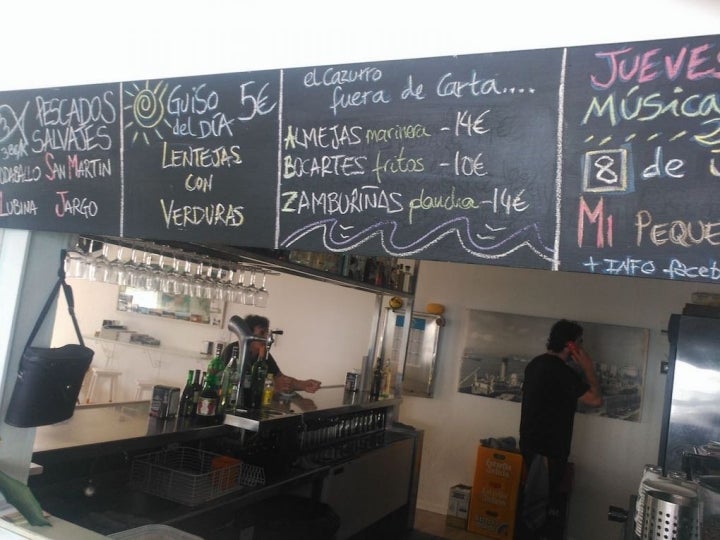 PESCADOS
SALVAJES
RODABALLO SAN MARTIN
LUBINA JARGO
GUISO
del DÍA
5€
LENTEJAS
CON
VERDURAS
el Cazurro
fuera de Carta....
ALMEJAS marinera - 14€
BOCARTES fritos - 10€
ZAMBURIÑAS plancha - 14€
JUEVES
MÚSICA
8 de
MI PEQUE
+ INFO faceb